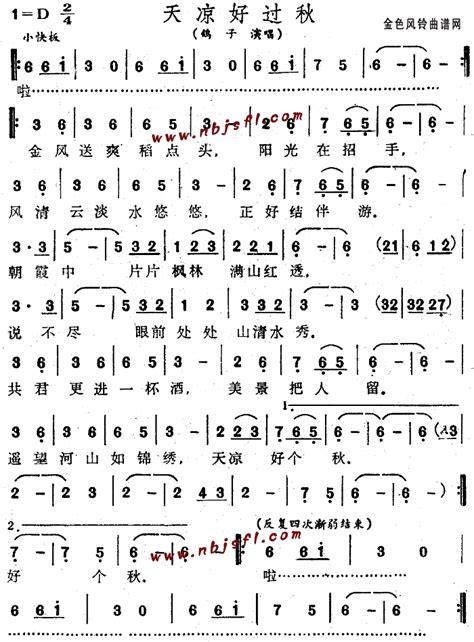 1=D 2/4 天凉好过秋
小快板 (鸽子 演唱) 金色风铃曲谱网
6 6i | 3 0 | 6 6i | 3 0 | 6 6i | 3 0 | 7 5 | 6 - | 6 - :‖
啦……
www.nbjsfl.com
‖: 3 6 | 3 6 | 6 5 | 3 - | 2 6 | 7 6 5 | 6 - | 6 - |
金风送爽稻点头, 阳光在招手,
3 6 | 3 6 | 6 5 | 3 - | 2 6 | 7 6 5 | 6 - | 6 - |
风清云淡水悠悠, 正好结伴游。
3·3 | 5 - | 5 3 2 | 1 2 3 | 5 3 2 | 1 - 6 | 6 (21 | 6 12) |
朝霞中 片片枫林 满山红透,
3·3 | 5 - | 5 3 2 | 1 2 3 | 5 3 2 | 3 - | (32 | 32 27) |
说不尽 眼前处处 山清水秀。
3 6 | 3 6 | 6 5 | 3 - | 2 6 | 7 6 5 | 6 - | 6 - |
共君更进一杯酒, 美景把人留。
1.
3 6 | 3 6 | 6 5 | 3 - | 2 2 3 | 7 6 5 | 6 - | 6 (λ3
遥望河山如锦绣, 天凉好个秋。
2 - | 2 - | 2 4 3 | 2 - ) :‖
2. (反复四次渐弱结束)
7 - | 7 5 | 6 - | 6 - :‖ 6 6i | 3 0 |
www.nbjsfl.com
好个秋。 啦……
6 6i | 3 0 | 6 6i | 3 0 | 7 5 | 6 - | 6 - :‖